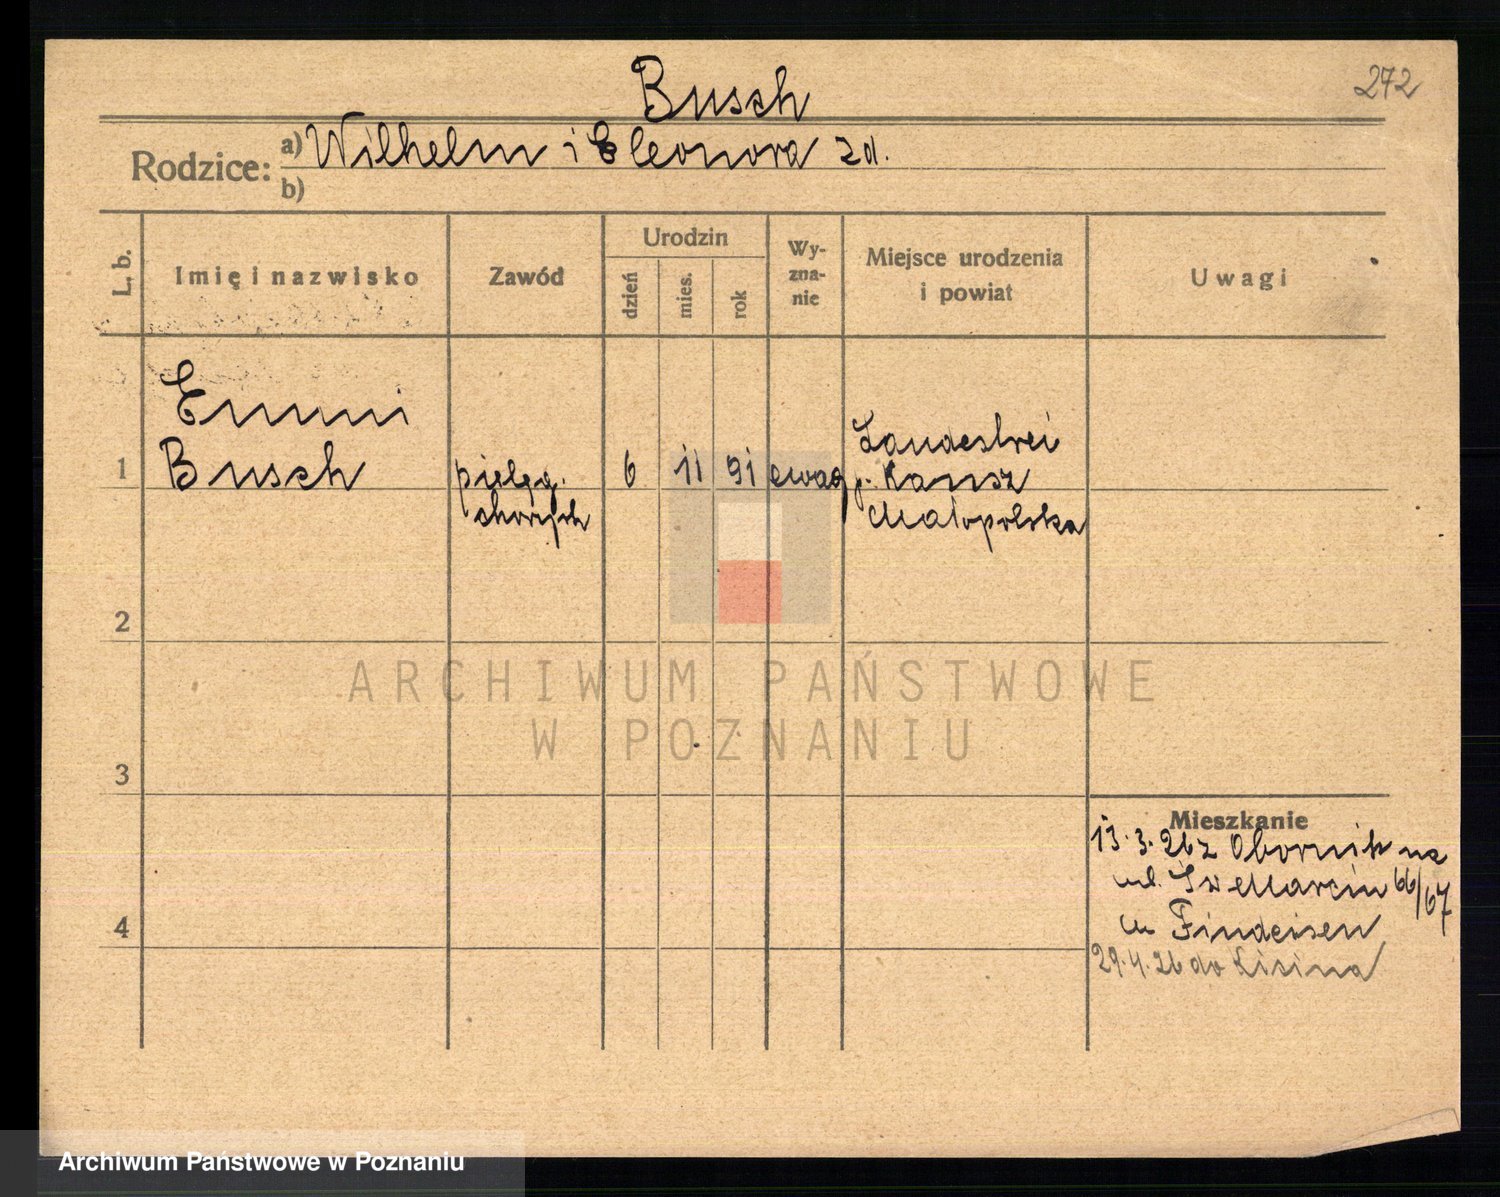 Busch
272
Rodzice: a) Wilhelm i Eleonora zd.
b)
L. b.
Imię i nazwisko
Zawód
Urodzin
dzień
mies.
rok
Wy-
zna-
nie
Miejsce urodzenia
i powiat
Uwagi
Emmi
1 Busch pielęg. 6 11 91 ewag
chorych
Landestrei
p. Kausz
Małopolska
2
3
4
Mieszkanie
13.3.26 z Obornik na
ul. Sw Marcin 66/67
u Findeisen
29.4.26 do Kisina
ARCHIWUM PAŃSTWOWE
W POZNANIU
Archiwum Państwowe w Poznaniu